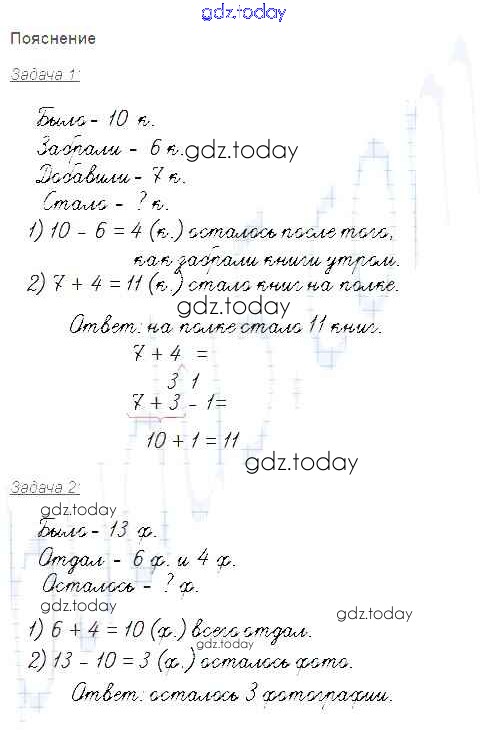 gdz.today
Пояснение
Задача 1:
Было - 10 к.
Забрали - 6 к.
gdz.today
Добавили - 7 к.
Стало - ? к.
1) 10 - 6 = 4 (к.) осталось после того,
как забрали книги утром.
2) 7 + 4 = 11 (к.) стало книг на полке.
gdz.today
Ответ: на полке стало 11 книг.
7 + 4 =
3 1
7 + 3 - 1=
10 + 1 = 11
gdz.today
Задача 2:
gdz.today
Было - 13 ф.
Отдал - 6 ф. и 4 ф.
Осталось - ? ф.
gdz.today
gdz.today
1) 6 + 4 = 10 (ф.) всего отдал.
gdz.today
2) 13 - 10 = 3 (ф.) осталось фото.
Ответ: осталось 3 фотографии.